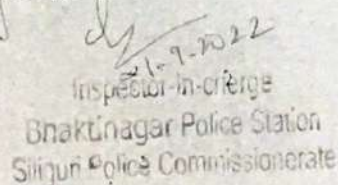 1.9.2022
Inspector-in-crierge
Bhaktinagar Police Station
Siliguri Police Commissionerate